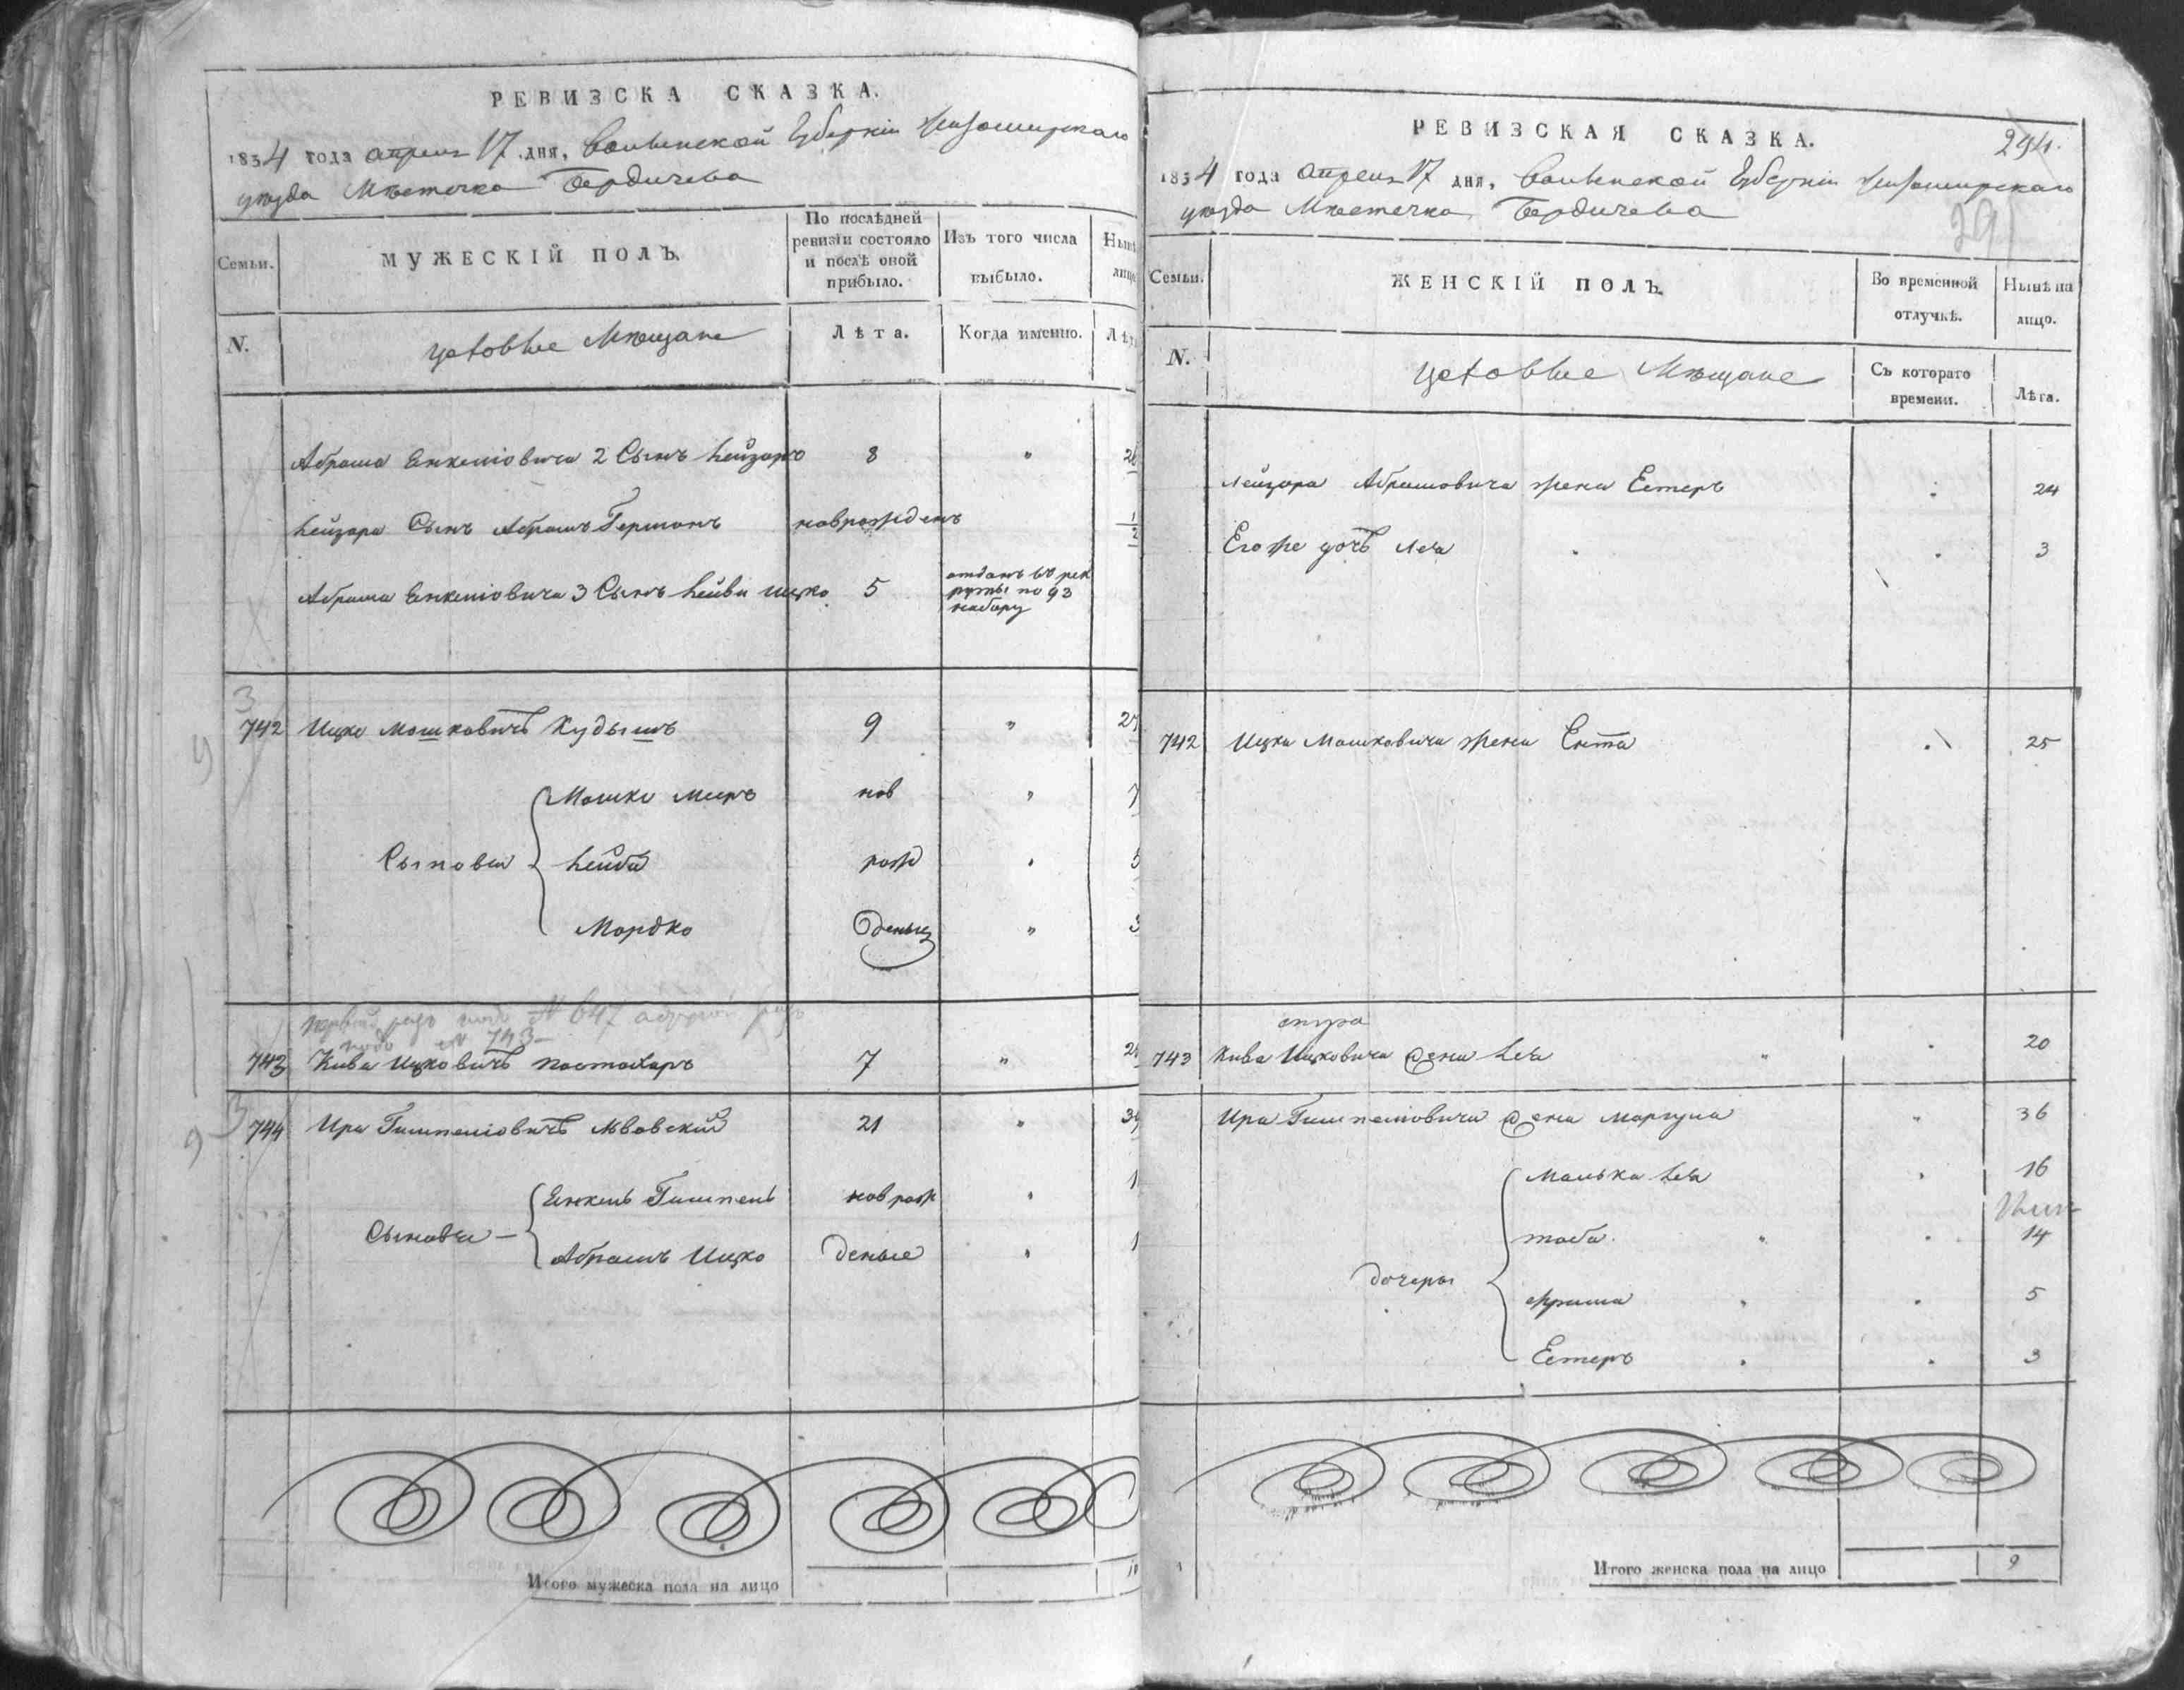 РЕВИЗСКА СКАЗКА.
1834 года апреля 17 дня, Волынской Губернии Житомирского
уезда Местечка Бердичева
Семьи.
МУЖЕСКІЙ ПОЛЪ.
По послѣдней
ревизіи состояло
и послѣ оной
прибыло.
Изъ того числа
выбыло.
N.
цеховые Мещане
Лѣта.
Когда именно.
Абрама Янкелiовича 2 Сынъ Лейзоръ 8 "
Лейзора Сынъ Абрамъ Германъ новрожденъ 1/2
Абрама Янкелiовича 3 Сынъ Лейви Ицко 5 отданъ въ рек
руты по 93
набору
742 Ицко Мошковичъ Кудышъ 9 "
Мошко Меиръ нов "
Сыновья Лейба рож
Мордко деныя "
№ 647
№ 743
743 Кива Ицковичъ 7 "
744 Ира Гимпелiовичъ Львовскій 21 "
Янкель Гимпель новрож
Сыновья
Абрамъ Ицко деные
Итого мужеска пола на лицо
РЕВИЗСКАЯ СКАЗКА.
294.
291
1834 года апреля 17 дня, Волынской Губернии Житомирского
уезда Местечка Бердичева
Семьи.
ЖЕНСКІЙ ПОЛЪ.
Во временной
отлучкѣ.
Нынѣ на
лицо.
N.
цеховые Мещане
Съ котораго
времени.
Лѣта.
Лейзора Абрамовича жена Естеръ 24
Его же дочь Леа 3
742 Ицка Мошковича жена Ента 25
743 Кива Ицковича жена Леа " 20
Ира Гимпелiовича жена " 36
Малька Леа 16
14
дочеры
5
Естеръ 3
Итого женска пола на лицо 9